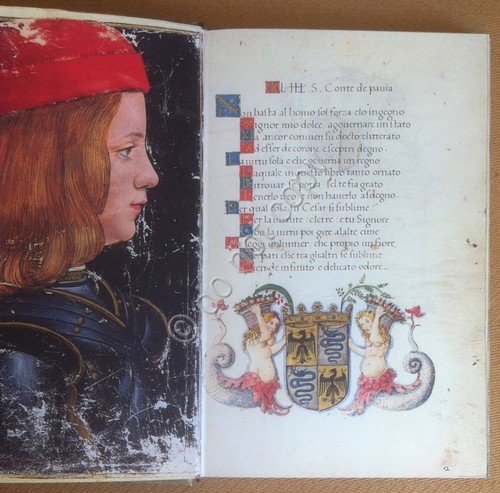 AL ILL. S. Conte de pauia
Non basta al homo sol forza e lo ingegno
Signor mio dolce a gouernare un stato
Ma ancor conuien sii docto e litterato
Ad esser de corone e sceptri degno.
La uirtu sola e che guerna un regno
La quale in questo libro tanto ornato
Ritrouar se pora sel te fia grato
Tenerlo non hauerlo a sdegno.
Per qual cosa fu Cesar si sublime
Per la mente e letre e tu Signore
Con la uirtu poi gire alalte cime
che proprio un fiore
che tra glialtri se sublime
Rende infinito e delicato odore.